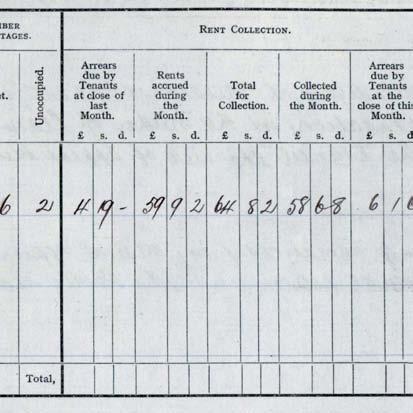 MBER
TAGES.
RENT COLLECTION.
et.
Unoccupied.
Arrears due by Tenants at close of last Month.
Rents accrued during the Month.
Total for Collection.
Collected during the Month.
Arrears due by Tenants at the close of this Month.
£ s. d. £ s. d. £ s. d. £ s. d. £ s. d.
6 2 4 19 - 59 9 2 64 8 2 58 6 8 6 1 6
Total,